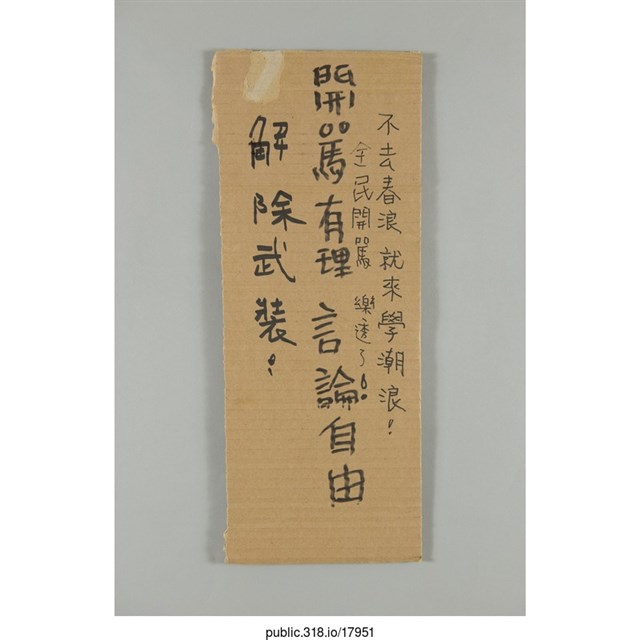 不去春浪 就來學潮浪!
全民開罵 樂透了!
開罵有理 言論自由
解除武裝!
public.318.io/17951